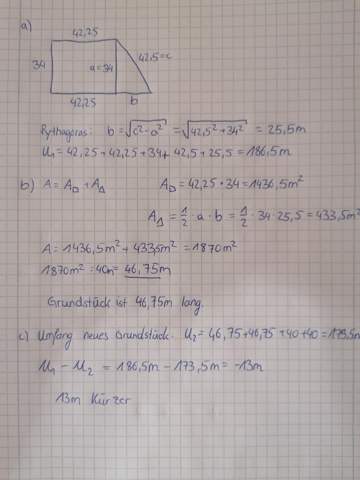 a)
42,25
34
a=34
42,5=c
42,25
b
Pythagoras: b = √c²-a² = √42,5²+34² = 25,5m
U₁ = 42,25 + 42,25 + 34 + 42,5 + 25,5 = 186,5m
b) A = A□ + A△ A□ = 42,25 · 34 = 1436,5m²
A△ = 1/2 · a · b = 1/2 · 34 · 25,5 = 433,5m²
A = 1436,5m² + 433,5m² = 1870m²
1870m² : 40m = 46,75m
Grundstück ist 46,75m lang.
c) Umfang neues Grundstück. U₂ = 46,75 + 46,75 + 40 + 40 = 173,5m
U₁ - U₂ = 186,5m - 173,5m = -13m
13m Kürzer